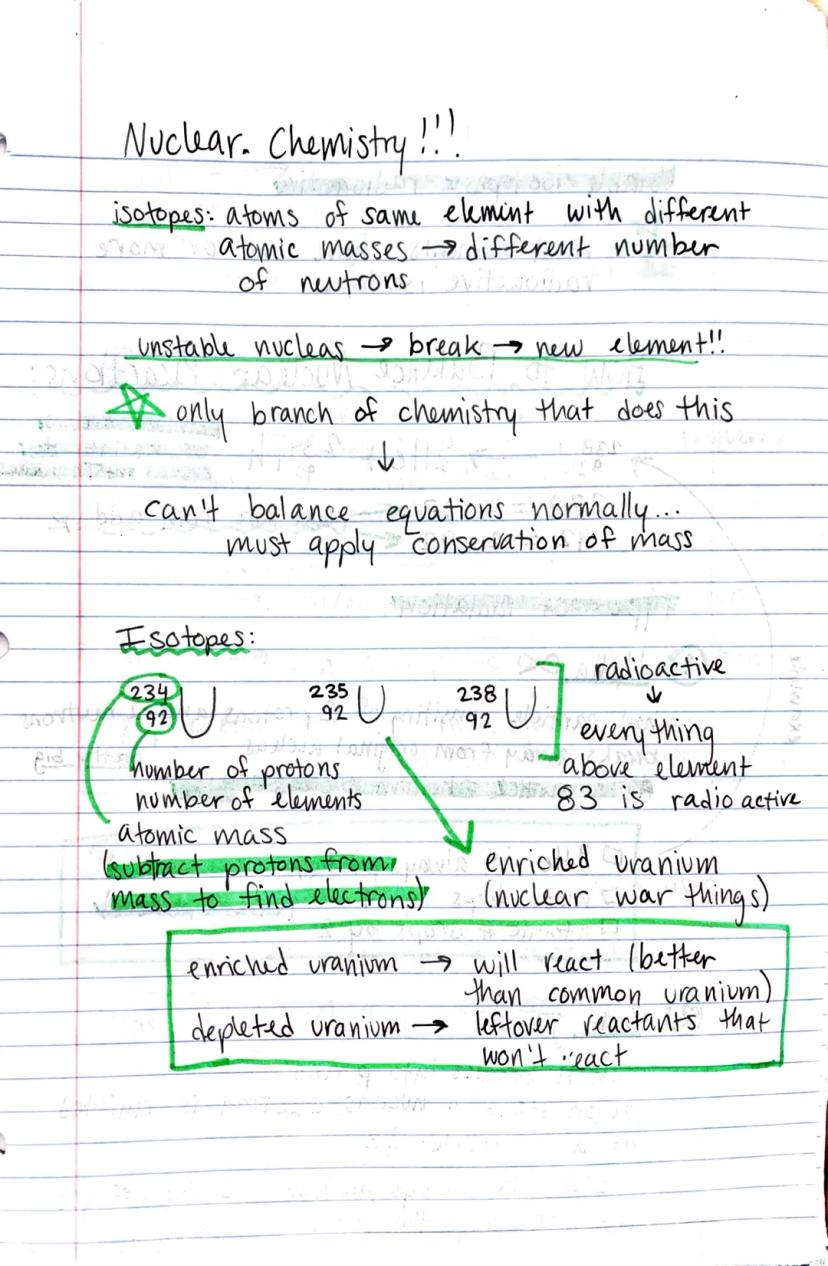 Nuclear. Chemistry!!!
isotopes: atoms of same elemint with different
atomic masses → different number
of neutrons
unstable nucleas → break → new element!!
☆ only branch of chemistry that does this
↓
can't balance equations normally...
must apply conservation of mass
Isotopes:
234
92 U
235
92 U
238
92 U
radioactive
↓
everything
above element
83 is radioactive
number of protons
number of elements
atomic mass
(subtract protons from
mass to find electrons)
enriched uranium
(nuclear war things)
enriched uranium → will react (better
than common uranium)
depleted uranium → leftover reactants that
won't react